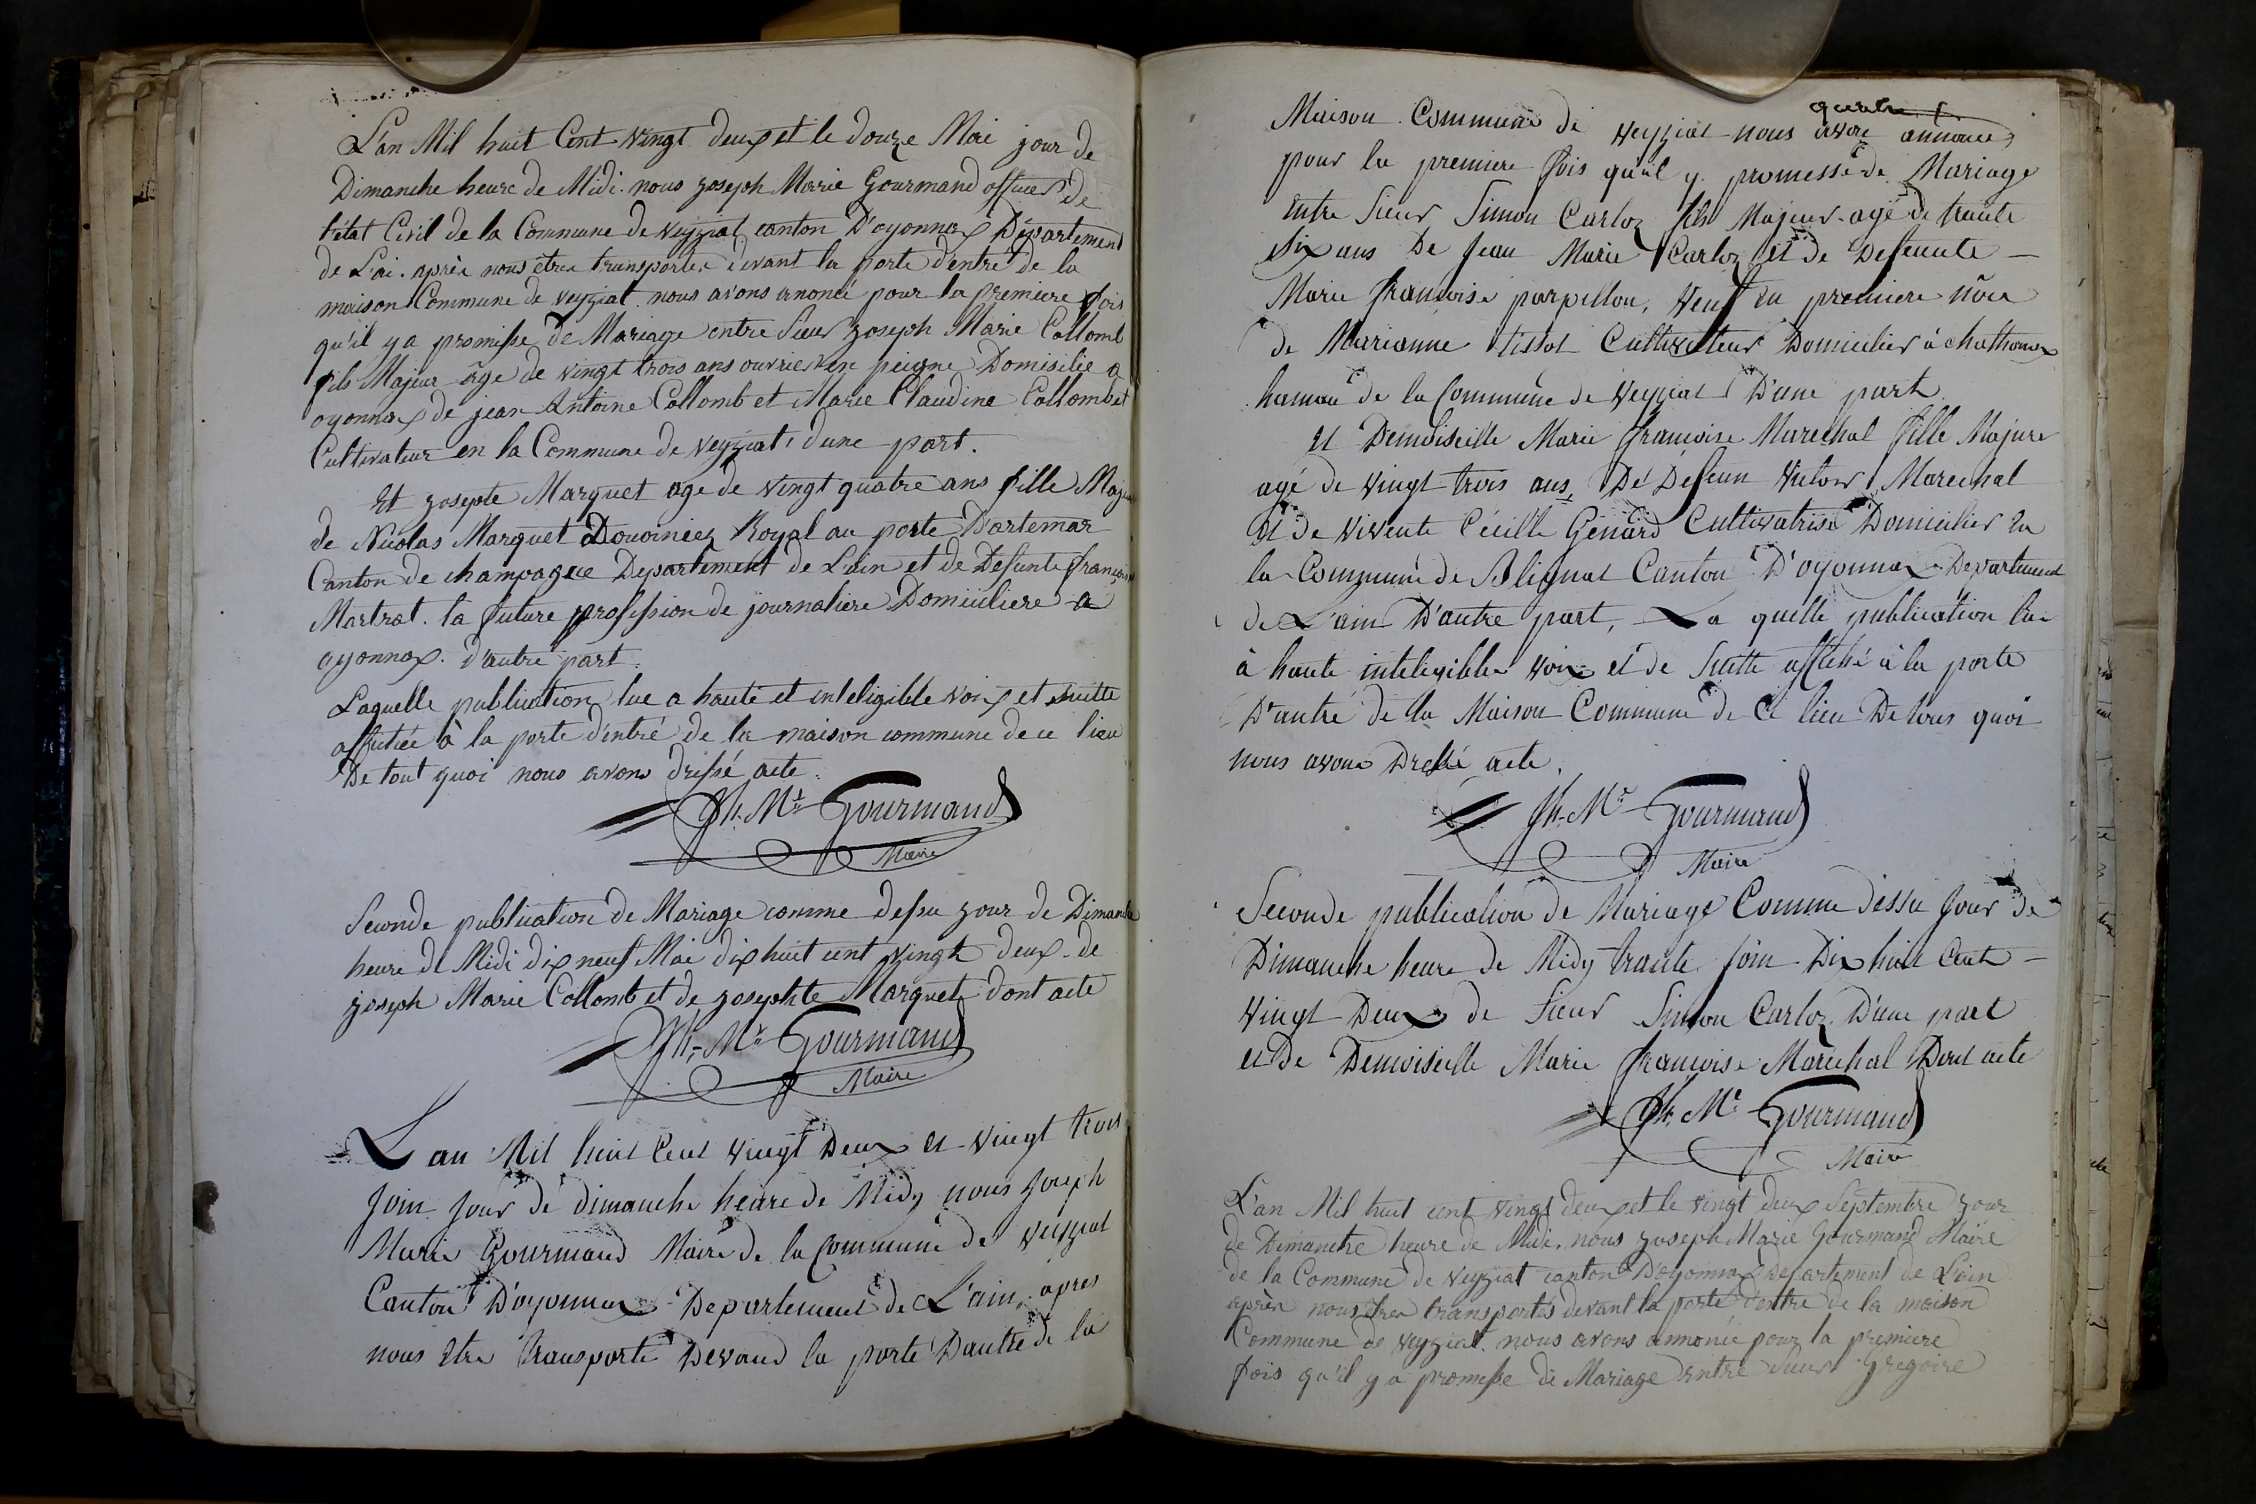 L'an Mil huit Cent vingt deux et le douze Mai jour de
Dimanche heure de Midi. nous joseph Marie Gourmand officier de
l'état Civil de la Commune de veyziat canton D'oyonnax Département
de L'ai. après nous être transporter devant la porte d'entré de la
maison Commune de veyziat nous avons anoncé pour la premiere fois
qu'il y a promisse de Mariage entre Sieur joseph Marie Collomb
fils Majeur âge de vingt trois ans ouvrier en peigne Domisilié a
oyonnax de jean Antoine Collomb et Marie Claudine Collombet
Cultivateur en la Commune de veyziat, d'une part.
Et josepte Marquet age de vingt quatre ans fille Maj
de Nicolas Marquet Douoinier Royal au porte D'artemar
Canton de champagne Departement de L'ain et de Defunte francoi
Martrat. la future profession de journaliere Domiciliere a
oyonnax. d'autre part.
Laquelle publication lue a haute et inteligible voix et suitte
affichée à la porte d'entré de la maison commune de ce lieu
De tout quoi nous avons dressé acte.
Jh. Mie Gourmand
Maire
Seconde publication de Mariage comme dessu jour de Dimanche
heure de Midi dix neuf Mai dix huit cent vingt deux de
joseph Marie Collomb et de josephte Marquet dont acte
Jh. Mie Gourmand
Maire
L an Mil huit Cent vingt Deux et vingt trois
Join jour de dimanche heure de Midy nous joseph
Marie Gourmand Maire de la Commune de veyziat
Canton D'oyonnax Departement de L'ain, après
nous Etre transporté Devand la porte D'autre de la
Maison Commune de veyziat nous avons annonce
pour la premiere fois qu'il y promesse de Mariage
entre Sieur Simon Carloz fils Majeur agé de trante
Six ans De Jean Marie Carloz et de Defeunte
Marie françoise parpillon, Veuf en premiere nôce
de Marianne tissot Cultivateur Domicilier à chathonax
hamau de la Commune de Veyziat D'une part
et Demoiselle Marie françoise Marechal fille Majure
agé de vingt trois ans, De Defeun Victor Marechal
et de vivente Cécille Gênard Cultivatrise Domicilier en
la Commune de Blignat Canton D'oyonnax Departement
de L'ain D'autre part, La quelle publication lue
à haute inteligible voix et de suitte affiché à la porte
D'antré de la Maison Commune de Ce lieu De tous quoi
nous avons Dressé acte.
Jh. Mie Gourmand
Maire
Seconde publication de Mariage Comme dessu jour de
Dimanche heure de Midy trante join Dix huit Cent
Vingt Deux de Sieur Simon Carloz D'une part
et De Demoiselle Marie françoise Maréchal Dont acte
Jh. Mie Gourmand
Maire
L'an Mil huit cent vingt deux et le vingt deux Septembre jour
de Dimanche heure de Midi. nous joseph Marie Gourmand Maire
de la Commune de veyziat canton D'oyonnax departement de L'ain
après nous être transportés devant la porte d'entre de la maison
Commune de veyziat. nous avons annoncé pour la premiere
fois qu'il y a promesse de Mariage entre Sieur Gregoire